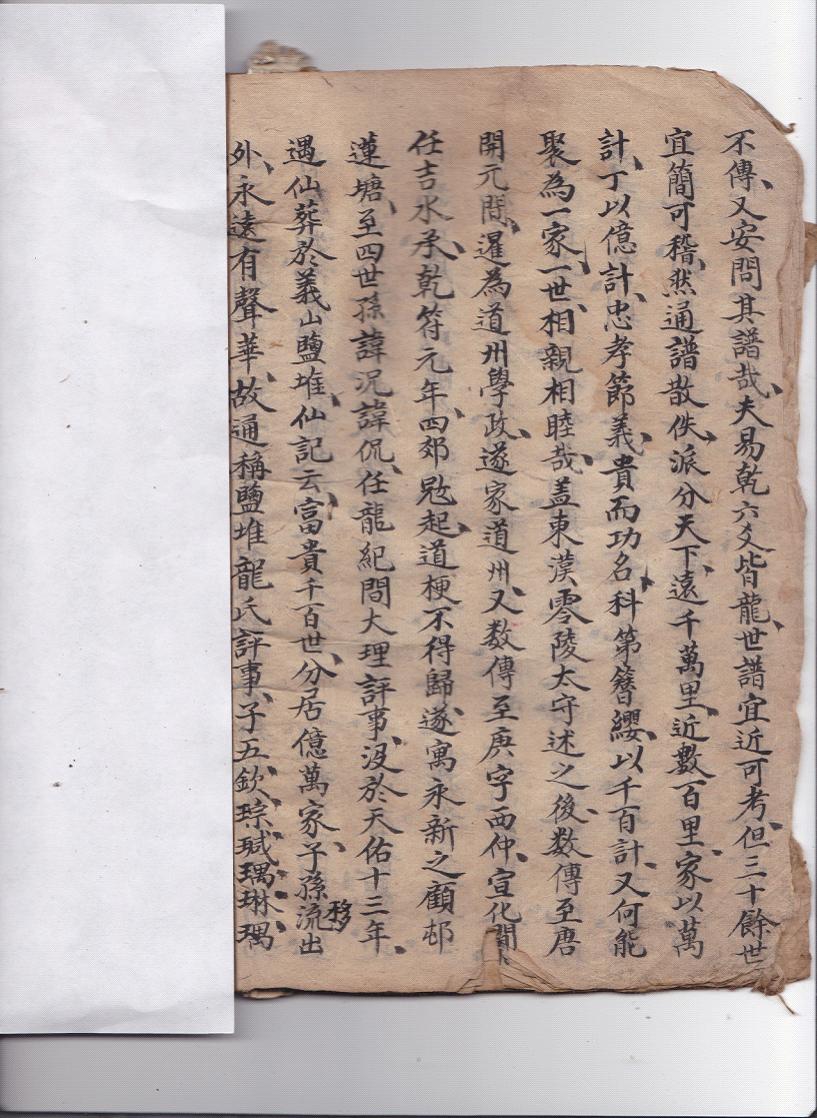 不傳、又安問其譜哉、夫易乾六爻皆龍、世譜宜近可考、但三十餘世
宜簡可稽、然通譜散佚、派分天下、遠千萬里、近數百里、家以萬
計、丁以億計、忠孝節義、貴而功名、科第簪纓、以千百計、又何能
聚為一家、一世、相親相睦哉、蓋東漢零陵太守述之後、数傳至唐
開元間、暹為道州學政、遂家道州、又数傳至庚字西仲、宣化間、
任吉水丞、乾符元年、四郊㓂起、道梗不得歸、遂寓永新之顧邨
蓮塘、至四世孫諱況諱侃、任龍紀間大理評事、沒於天佑十三年、
遇仙葬於義山鹽堆、仙記云、富貴千百世、分居億萬家、子孫流移出
外、永遠有聲華、故通稱鹽堆龍氏評事、子五、欽、琮、珹、瑀、琳、瑀